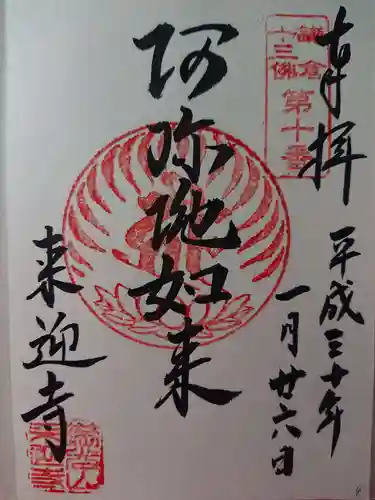 奉拝
鎌倉
十三佛
第十番
平成三十年
一月廿六日
阿弥陀如来
来迎寺